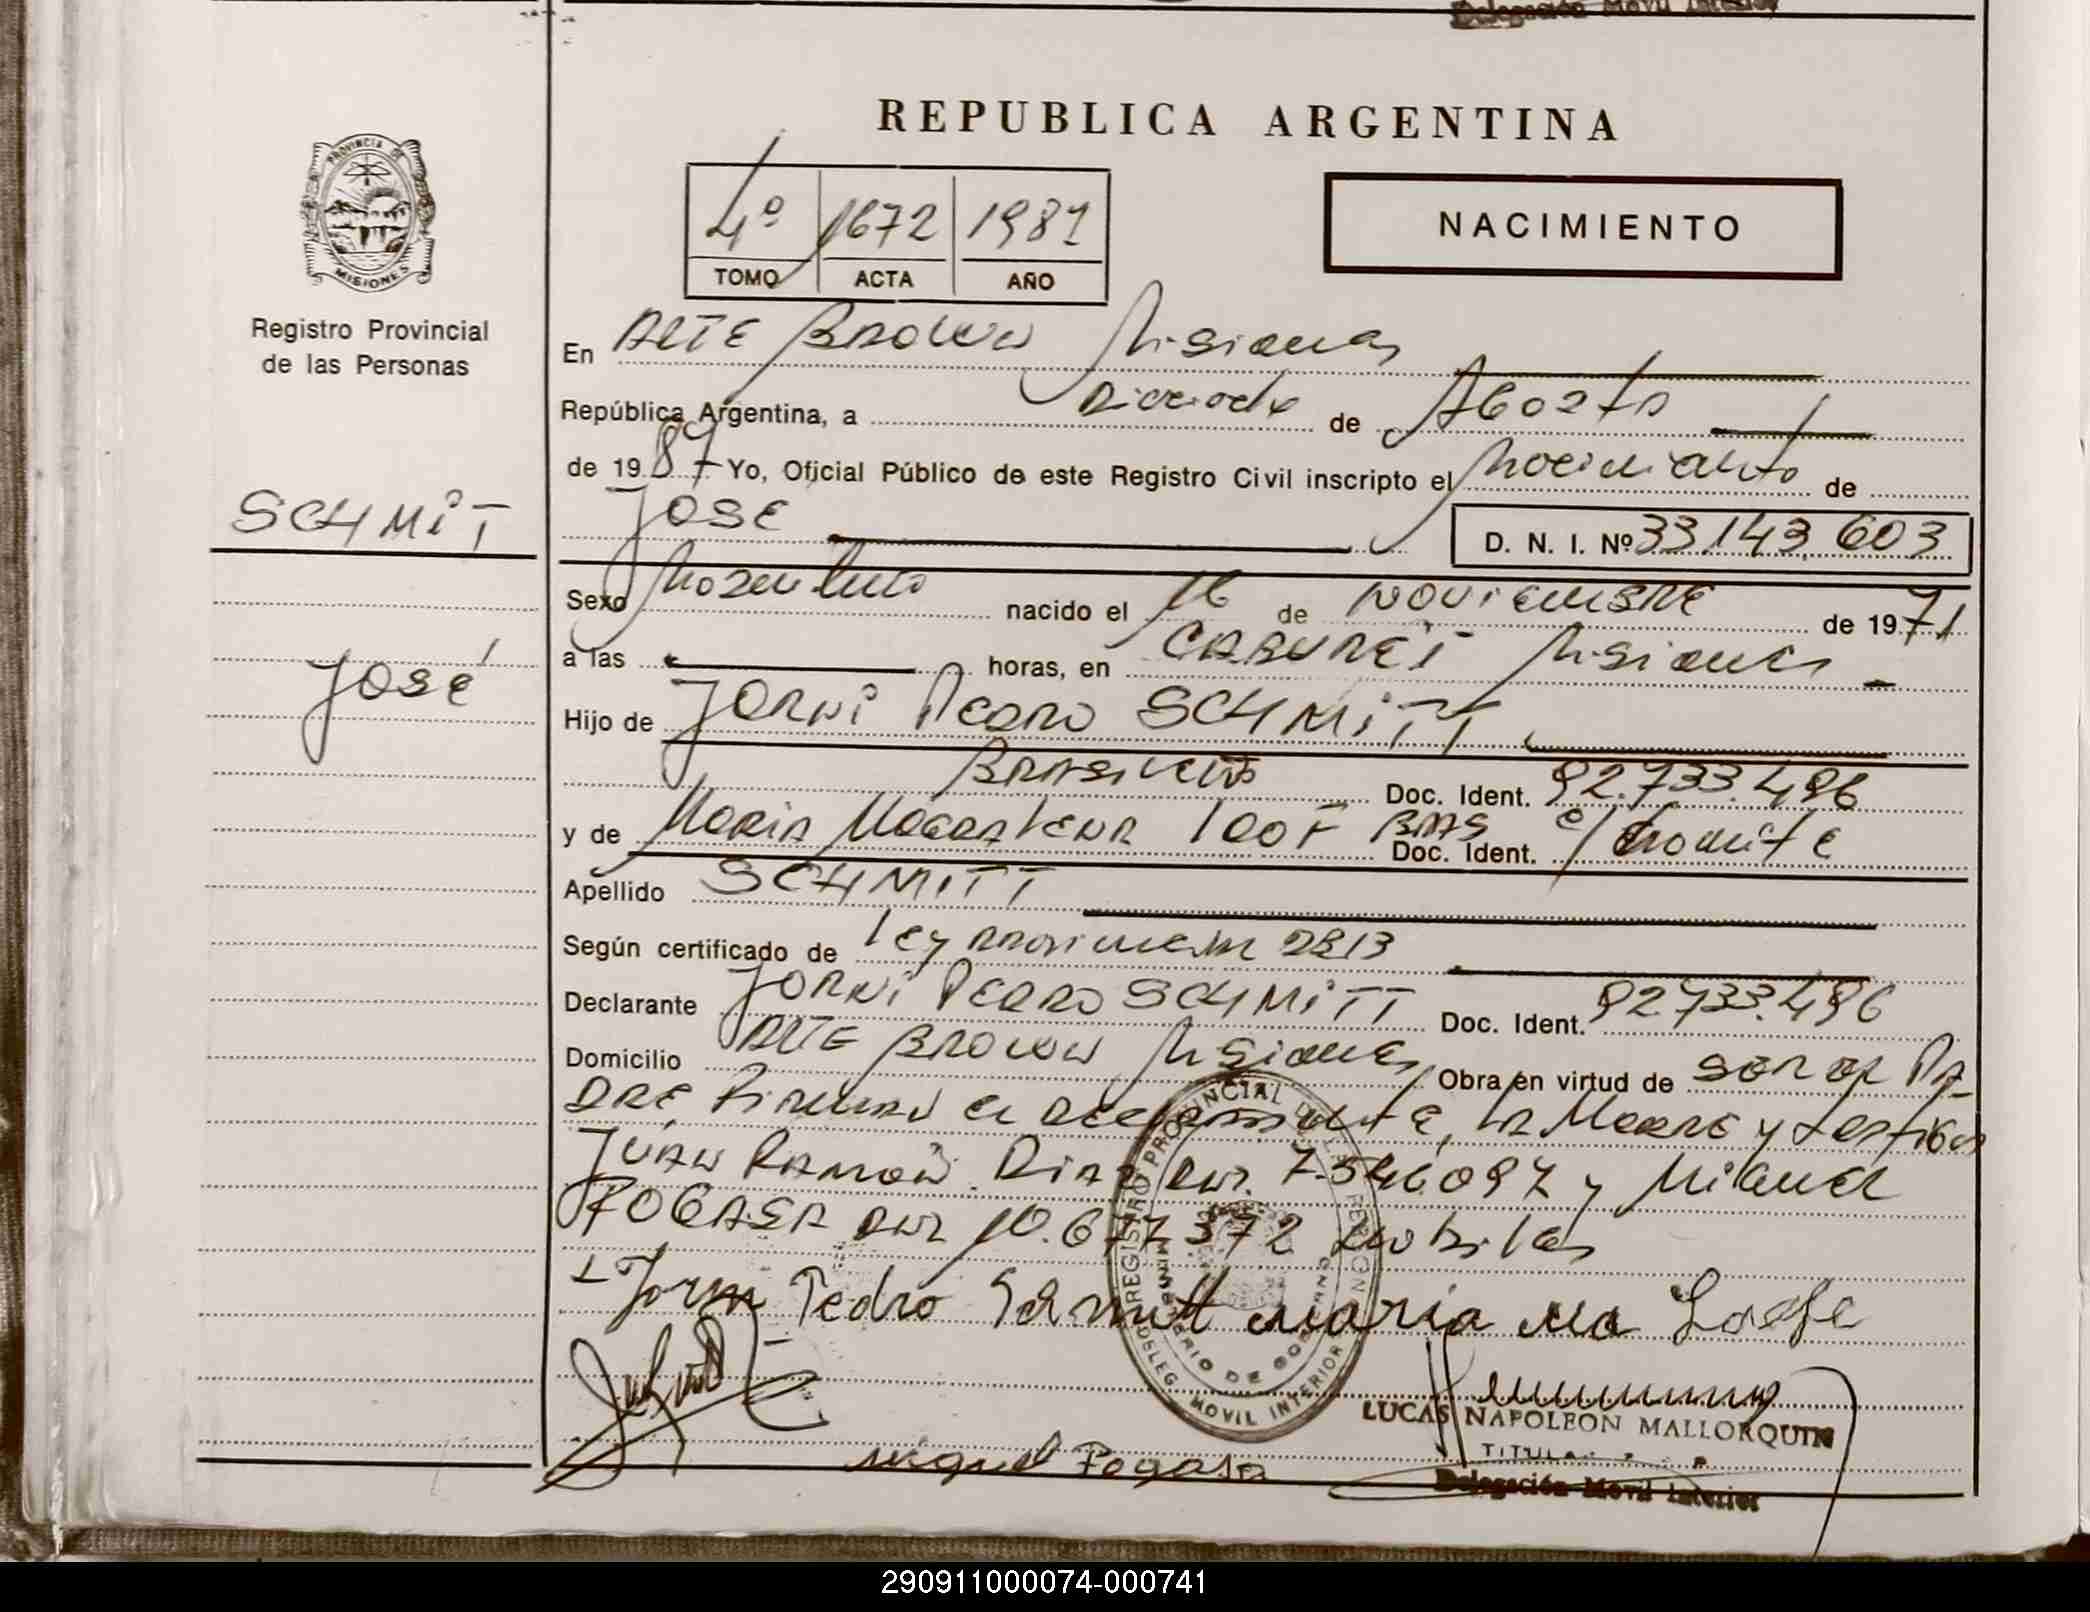 Delegación Móvil Interior
REPUBLICA ARGENTINA
PROVINCIA DE
MISIONES
4º 1672 1987
TOMO ACTA AÑO
NACIMIENTO
Registro Provincial
de las Personas
En ALTE BROWN Misiones
República Argentina, a Dieciocho de AGOSTO
de 1987 Yo, Oficial Público de este Registro Civil inscripto el Nacimiento de
SCHMIT
JOSE D. N. I. Nº 33.143.603
Sexo Masculino nacido el 16 de NOVIEMBRE de 1971
José
a las horas, en CABUREÍ Misiones
Hijo de JORNI PEDRO SCHMITT
BRASILEÑO Doc. Ident. 92.733.496
y de MARIA MAGDALENA LOOF BRAS Doc. Ident. e/tramite
Apellido SCHMITT
Según certificado de ley provincial 2813
Declarante JORNI PEDRO SCHMITT Doc. Ident. 92.733.496
Domicilio ALTE BROWN Misiones Obra en virtud de SER EL PA-
DRE Firman el declarante, la Madre y testigos
JUAN RAMON DIAZ DNI. 7.546.097 y Miguel
FOGASA DNI 10.677.372 habiles
Jorni Pedro Schmitt Maria Ma Loefe
REGISTRO PROVINCIAL DE LAS PERSONAS
MINISTERIO DE GOBIERNO
DELEG. MOVIL INTERIOR
LUCAS NAPOLEON MALLORQUIN
TITULAR
Miguel Fogasa
Delegación Móvil Interior
290911000074-000741